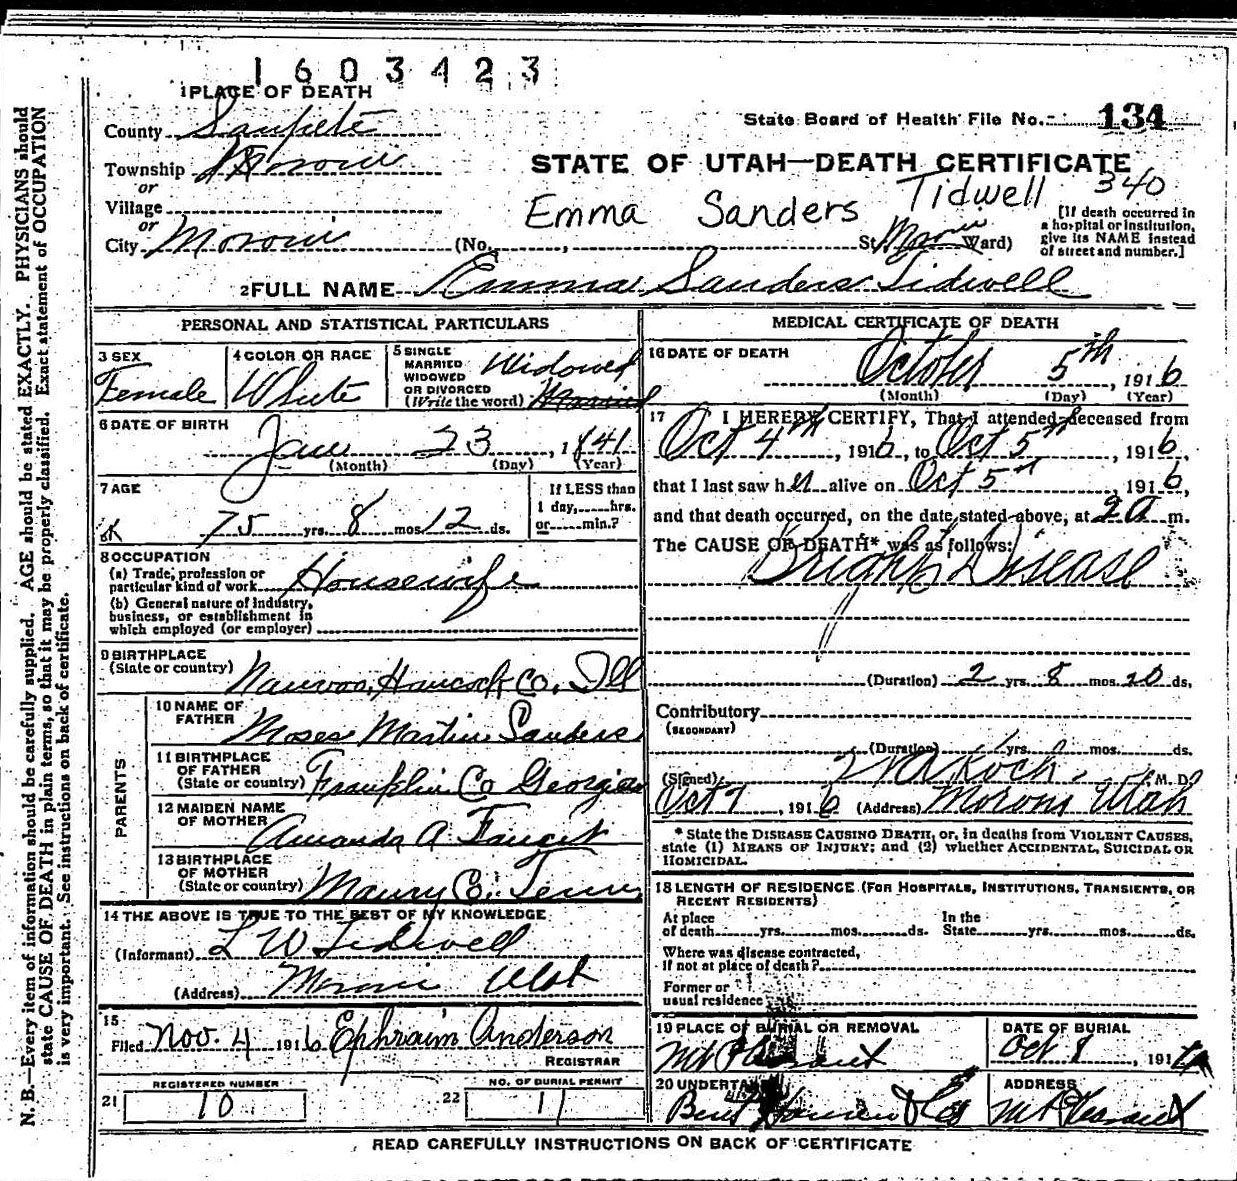 1603423
1 PLACE OF DEATH
County Sanpete
State Board of Health File No. 134
Township Moroni
STATE OF UTAH—DEATH CERTIFICATE
or
Village
Emma Sanders Tidwell 340
or
City Moroni (No. , St. Moroni Ward)
[If death occurred in
a hospital or institution,
give its NAME instead
of street and number.]
2 FULL NAME Emma Sanders Tidwell
PERSONAL AND STATISTICAL PARTICULARS
3 SEX
Female
4 COLOR OR RACE
White
5 SINGLE
MARRIED
WIDOWED
OR DIVORCED
(Write the word)
Widowed
Married
6 DATE OF BIRTH
Jan 23, 1841
(Month) (Day) (Year)
7 AGE
75 yrs. 8 mos. 12 ds.
If LESS than
1 day, hrs.
or min.?
8 OCCUPATION
(a) Trade, profession or
particular kind of work Housewife
(b) General nature of industry,
business, or establishment in
which employed (or employer)
9 BIRTHPLACE
(State or country) Nauvoo, Hancock Co, Ill
PARENTS
10 NAME OF
FATHER Moses Martin Sanders
11 BIRTHPLACE
OF FATHER
(State or country) Franklin Co Georgia
12 MAIDEN NAME
OF MOTHER Amanda A Faucit
13 BIRTHPLACE
OF MOTHER
(State or country) Maury Co. Tenn
14 THE ABOVE IS TRUE TO THE BEST OF MY KNOWLEDGE
(Informant) L W Tidwell
(Address) Moroni Utah
15
Filed Nov. 4 1916 Ephraim Anderson
REGISTRAR
REGISTERED NUMBER
21 10
NO. OF BURIAL PERMIT
22 11
MEDICAL CERTIFICATE OF DEATH
16 DATE OF DEATH
October 5th, 1916
(Month) (Day) (Year)
17 I HEREBY CERTIFY, That I attended deceased from
Oct 4th, 1916, to Oct 5th, 1916,
that I last saw her alive on Oct 5th, 1916,
and that death occurred, on the date stated above, at 2 a m.
The CAUSE OF DEATH* was as follows:
Brights Disease
(Duration) 2 yrs. 8 mos. 20 ds.
Contributory
(SECONDARY)
(Duration) yrs. mos. ds.
(Signed) Koch, M. D.
Oct 7, 1916 (Address) Moroni Utah
* State the DISEASE CAUSING DEATH, or, in deaths from VIOLENT CAUSES,
state (1) MEANS OF INJURY; and (2) whether ACCIDENTAL, SUICIDAL OR
HOMICIDAL.
18 LENGTH OF RESIDENCE (FOR HOSPITALS, INSTITUTIONS, TRANSIENTS, OR
RECENT RESIDENTS)
At place
of death yrs. mos. ds.
In the
State yrs. mos. ds.
Where was disease contracted,
if not at place of death?
Former or
usual residence
19 PLACE OF BURIAL OR REMOVAL
Mt Pleasant
DATE OF BURIAL
Oct 8, 191
20 UNDERTAKER
Hansen & Co
ADDRESS
Mt Pleasant
READ CAREFULLY INSTRUCTIONS ON BACK OF CERTIFICATE
N. B.—Every item of information should be carefully supplied. AGE should be stated EXACTLY. PHYSICIANS should
state CAUSE OF DEATH in plain terms, so that it may be properly classified. Exact statement of OCCUPATION
is very important. See instructions on back of certificate.